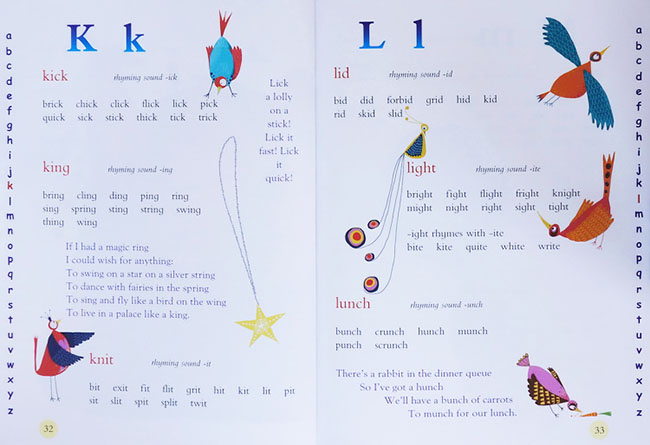 a
b
c
d
e
f
g
h
i
j
k
l
m
n
o
p
q
r
s
t
u
v
w
x
y
z
K k
kick rhyming sound -ick
brick chick click flick lick pick
quick sick stick thick tick trick
Lick
a lolly
on a
stick!
Lick it
fast! Lick
it
quick!
king rhyming sound -ing
bring cling ding ping ring
sing spring sting string swing
thing wing
If I had a magic ring
I could wish for anything:
To swing on a star on a silver string
To dance with fairies in the spring
To sing and fly like a bird on the wing
To live in a palace like a king.
knit rhyming sound -it
bit exit fit flit grit hit kit lit pit
sit slit spit split twit
32
L l
lid rhyming sound -id
bid did forbid grid hid kid
rid skid slid
light rhyming sound -ite
bright fight flight fright knight
might night right sight tight
-ight rhymes with -ite
bite kite quite white write
lunch rhyming sound -unch
bunch crunch hunch munch
punch scrunch
There's a rabbit in the dinner queue
So I've got a hunch
We'll have a bunch of carrots
To munch for our lunch.
33
a
b
c
d
e
f
g
h
i
j
k
l
m
n
o
p
q
r
s
t
u
v
w
x
y
z